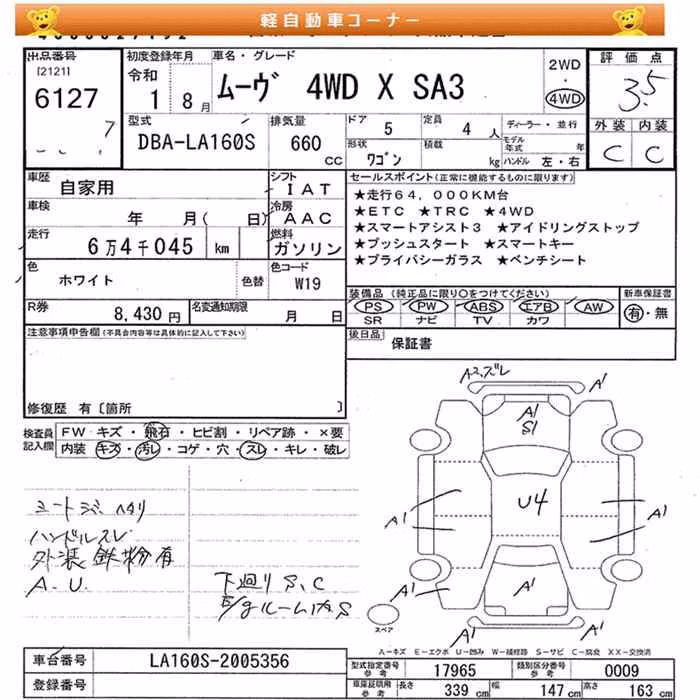 軽自動車コーナー
出品番号
[2121]
6127
7
初度登録年月
令和
1 8月
車名・グレード
ムーヴ 4WD X SA3
2WD
・
4WD
評価点
3.5
外装 内装
C C
型式
DBA-LA160S
排気量
660
CC
ドア
5
定員
4 人
形状
ワゴン
積載
kg
ディーラー・並行
モデル年式 年
ハンドル 左・右
車歴
自家用
シフト
IAT
車検
年 月( 日)
冷房
AAC
走行
6万4千045 km
燃料
ガソリン
色
ホワイト
色替
色コード
W19
R券
8,430 円
名変通知期限
月 日
セールスポイント(正常に機能するものに限ります)
★走行64,000KM台
★ETC ★TRC ★4WD
★スマートアシスト3 ★アイドリングストップ
★プッシュスタート ★スマートキー
★プライバシーガラス ★ベンチシート
装備品(純正品に限り○をつけてください)
PS PW ABS エアB AW
SR ナビ TV カワ
新車保証書
有・無
後日品
保証書
注意事項申告欄(不具合内容等は具体的に記入して下さい)
修復歴 有〔箇所 〕
検査員記入欄
FW キズ・飛石・ヒビ割・リペア跡・×要
内装 キズ・汚レ・コゲ・穴・スレ・キレ・破レ
ハンドルスレ
外装鉄粉有
A.U.
下廻りS.C
E/gルーム内S
A2.ズレ
A1
A1
S1
A1
U4
A1
A1
A1
A1
A1
スペア
A-キズ E-エクボ U-凹み W-補修跡 S-サビ C-腐食 XX-交換済
車台番号
LA160S-2005356
登録番号
型式指定番号
参考
17965
類別区分番号
参考
0009
車庫証明用
参考
長さ 339 cm 幅 147 cm 高さ 163 cm